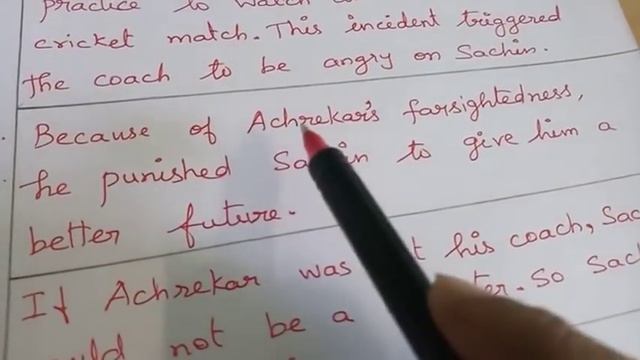 practice to watch
cricket match. This incident triggered
the coach to be angry on Sachin.
Because of Achrekar's farsightedness,
he punished Sachin to give him a
better future.
If Achrekar was his coach, Sac
So Sac
not be a